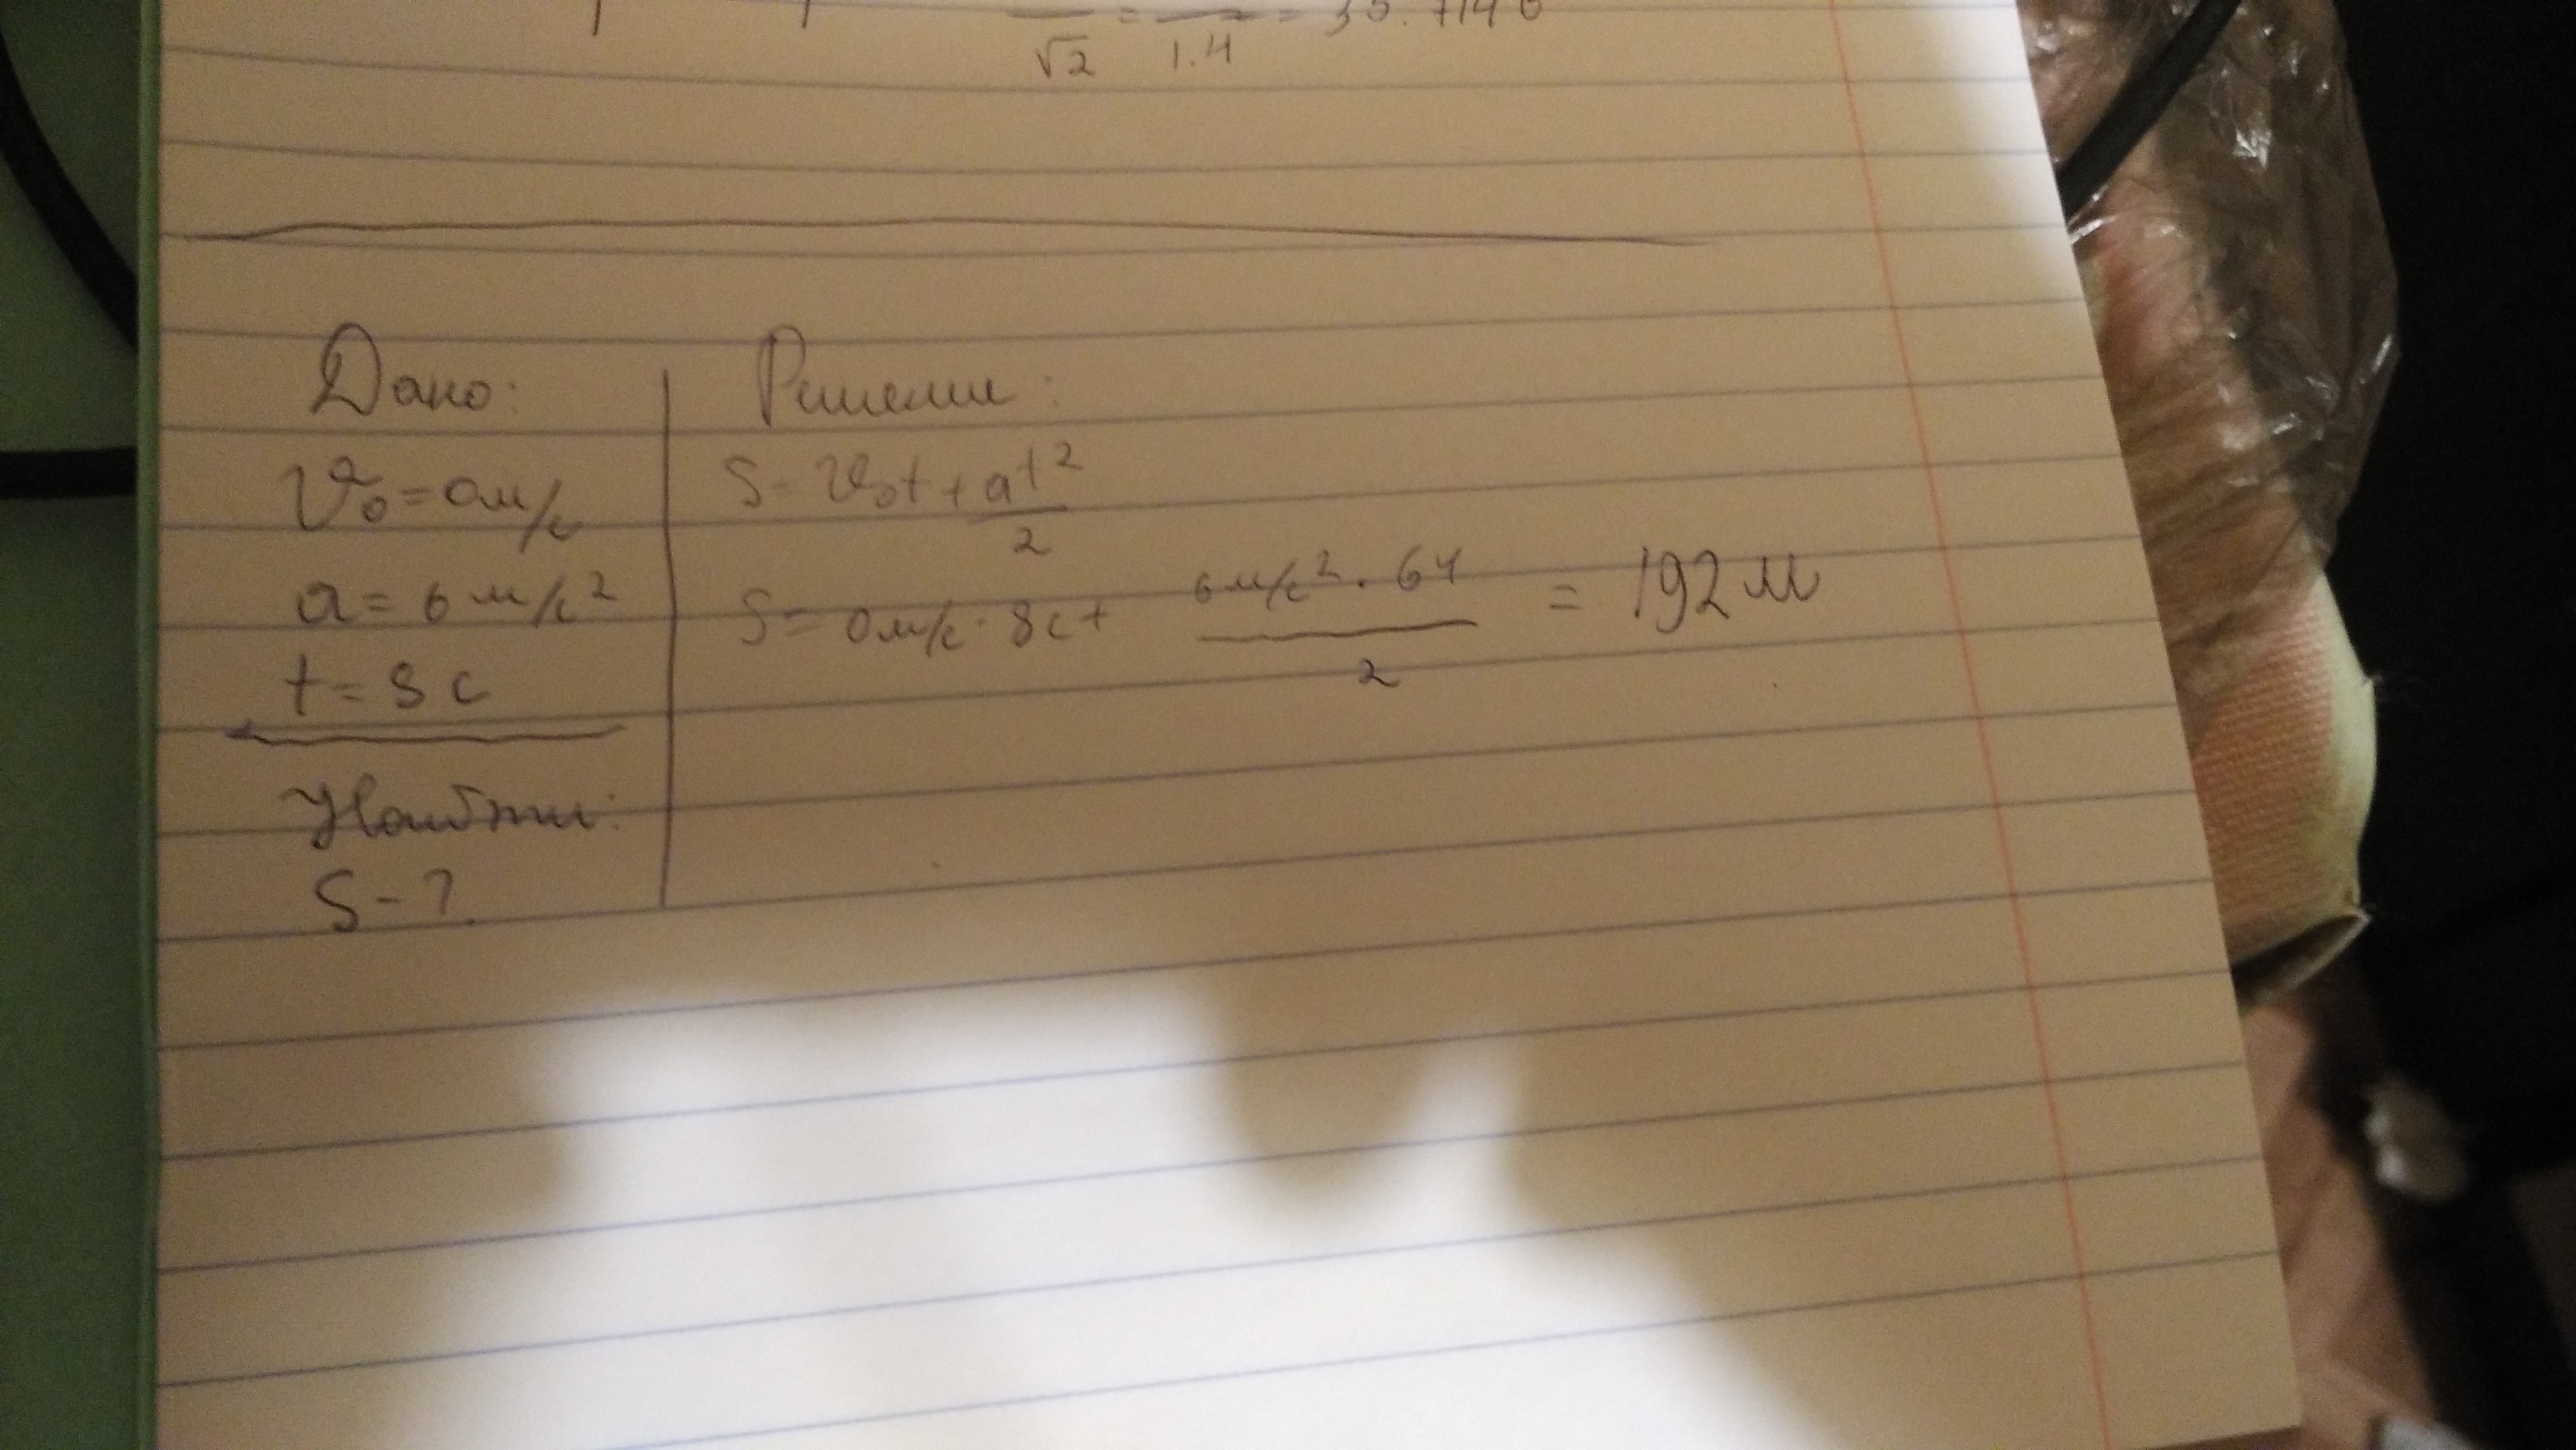 √2 1.4
Дано:
V₀ = 0м/с
a = 6 м/с²
t = 8 с
Найти:
S - ?
Решение:
S = V₀t + at²/2
S = 0м/с · 8с + 6м/с² · 64/2 = 192 м